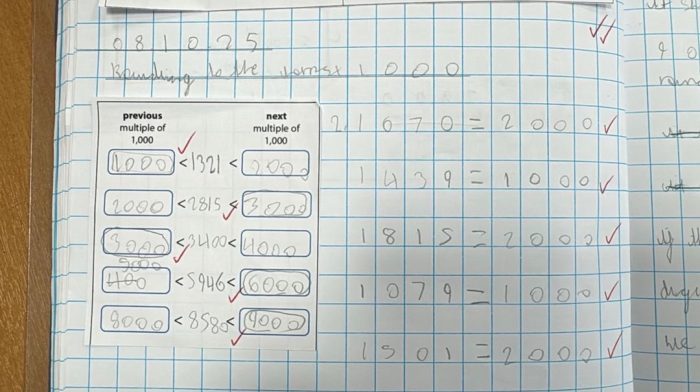 081025
Rounding to the nearest 1000
previous multiple of 1,000
next multiple of 1,000
1000 < 1321 < 2000
2000 < 2815 < 3000
3000 < 3400 < 4000
5000
400 < 5946 < 6000
8000 < 8580 < 9000
2. 1670 = 2000
1439 = 1000
1815 = 2000
1079 = 1000
1501 = 2000
if the
we